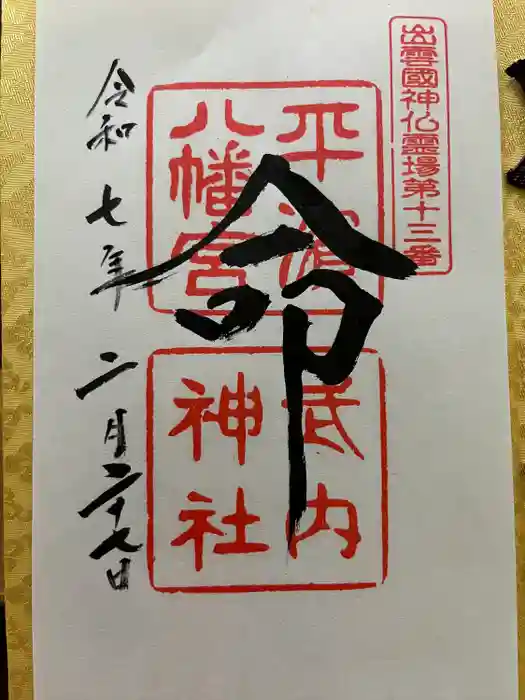 出雲國神仏霊場第十三番
平濱
八幡宮
武内
神社
命
令和 七年 二月二十七日